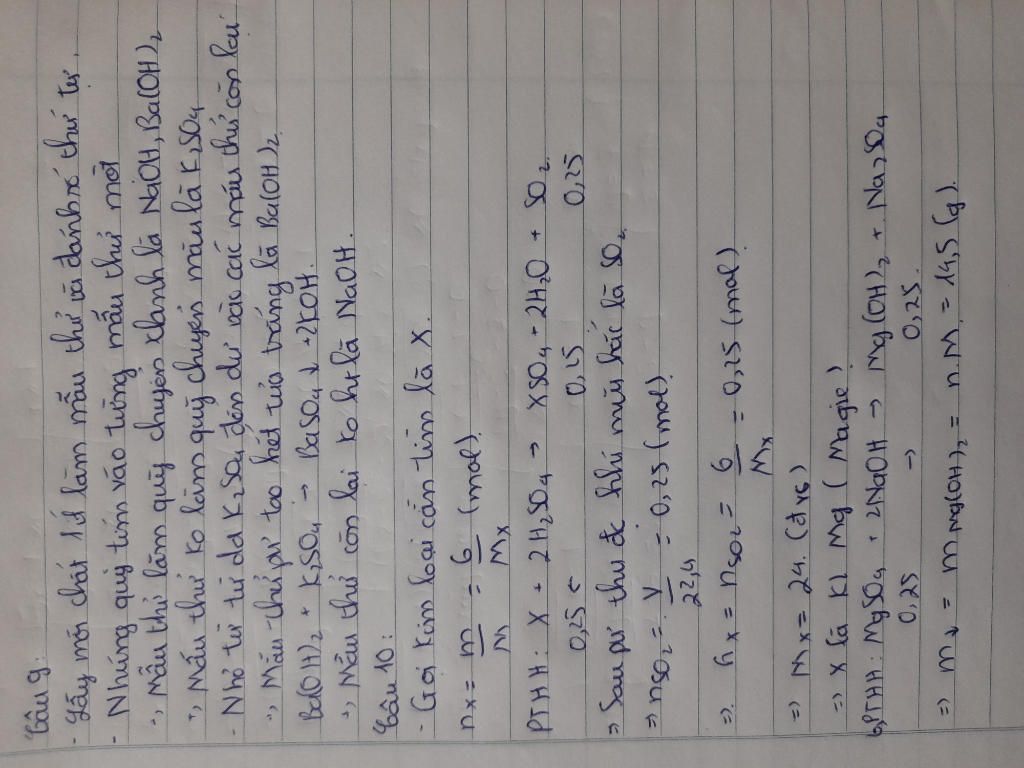 Câu 9:
- Lấy mỗi chất 1 ít làm mẫu thử và đánh số thứ tự.
- Nhúng quỳ tím vào từng mẫu thử một
+, Mẫu thử làm quỳ chuyển xanh là NaOH, Ba(OH)2
+, Mẫu thử ko làm quỳ chuyển màu là K2SO4
- Nhỏ từ từ dd K2SO4 đến dư vào các mẫu thử còn lại
+, Mẫu thử pứ tạo kết tủa trắng là Ba(OH)2.
Ba(OH)2 + K2SO4 → BaSO4↓ + 2KOH.
+, Mẫu thử còn lại ko ht là NaOH.
Câu 10:
- Gọi kim loại cần tìm là X.
nX = m/M = 6/MX (mol)
PTHH: X + 2H2SO4 → XSO4 + 2H2O + SO2
0,25 ← 0,25 0,25
=> Sau pứ thu đc khí mùi hắc là SO2
=> nSO2 = V/22,4 = 0,25 (mol)
=> nX = nSO2 = 6/MX = 0,25 (mol)
=> MX = 24. (đvc)
=> X là KL Mg (Magie)
b, PTHH: MgSO4 + 2NaOH → Mg(OH)2 + Na2SO4
0,25 → 0,25
=> m↓ = mMg(OH)2 = n.M = 14,5 (g).